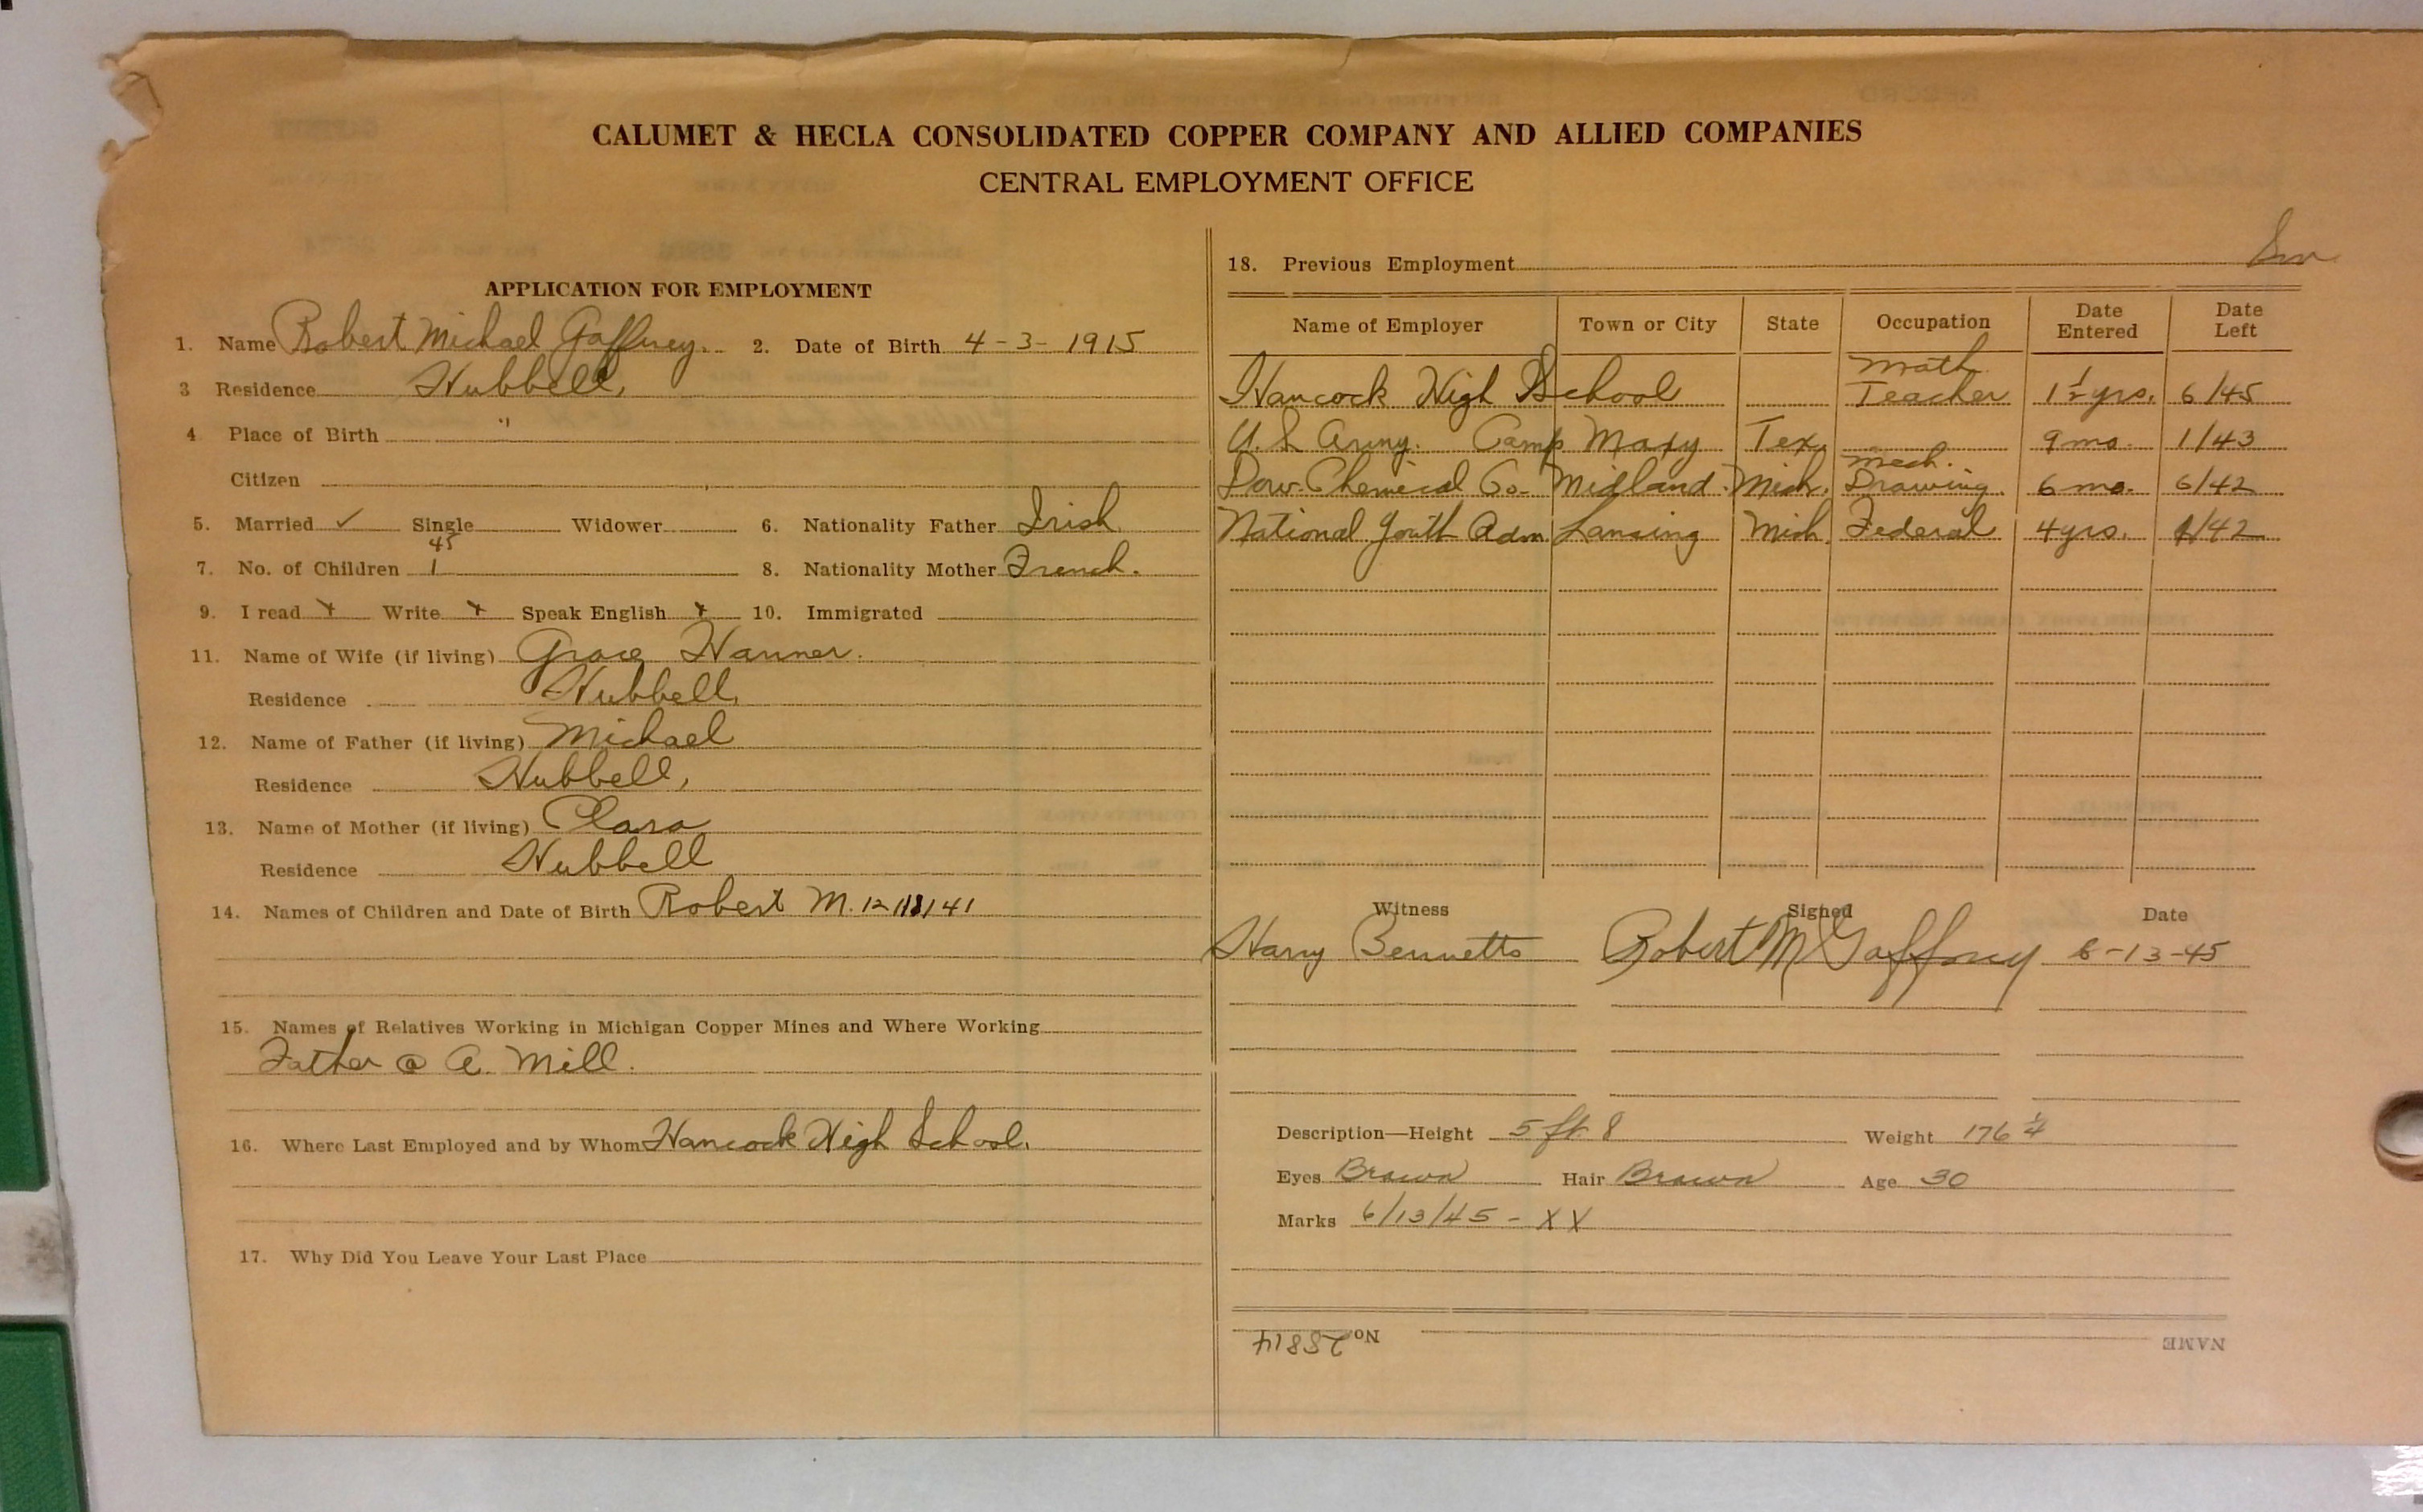 CALUMET & HECLA CONSOLIDATED COPPER COMPANY AND ALLIED COMPANIES
CENTRAL EMPLOYMENT OFFICE
APPLICATION FOR EMPLOYMENT
1. Name Robert Michael Gaffney. 2. Date of Birth 4-3-1915
3 Residence Hubbell,
4 Place of Birth "
Citizen
5. Married ✓ Single Widower 6. Nationality Father Irish
45
7. No. of Children 1 8. Nationality Mother French.
9. I read x Write x Speak English x 10. Immigrated
11. Name of Wife (if living) Grace Hanner.
Residence Hubbell,
12. Name of Father (if living) Michael
Residence Hubbell,
13. Name of Mother (if living) Clara
Residence Hubbell
14. Names of Children and Date of Birth Robert M. 12/18/41
15. Names of Relatives Working in Michigan Copper Mines and Where Working
Father @ A. Mill.
16. Where Last Employed and by Whom Hancock High School.
17. Why Did You Leave Your Last Place
18. Previous Employment
Name of Employer Town or City State Occupation Date Entered Date Left
Hancock High School Math Teacher 1½ yrs. 6/45
U.S. Army. Camp Maxy Tex 9 mo. 1/43
Dow Chemical Co. Midland. Mich. Mech. Drawing. 6 mo. 6/42
National Youth Adm. Lansing Mich. Federal 4 yrs. 1/42
Witness Signed Date
Harry Bennetts Robert M Gaffney 6-13-45
Description—Height 5 ft 8 Weight 176 ¼
Eyes Brown Hair Brown Age 30
Marks 6/13/45 - XX
No 25814 NAME